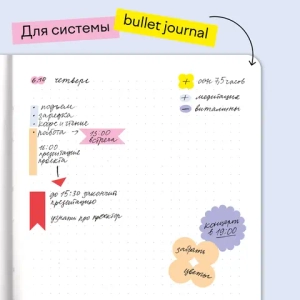 Для системы
bullet journal
6.10 четверг
подъём
зарядка
кофе и чтение
работа → 13:00
встреча
11:00
презентация
проекта
до 15:30 закончить
презентацию
узнать про проектор
сон 7,5 часов
медитация
витамины
концерт
в 19:00
забрать
цветы